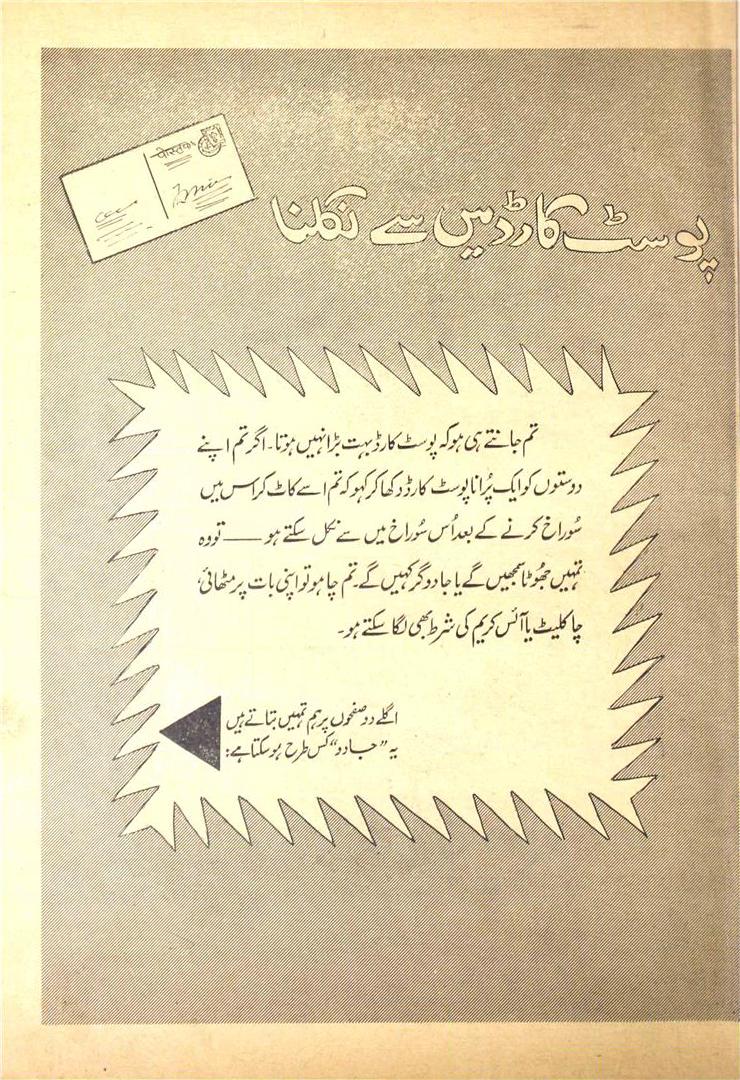 पोस्टका
پوسٹ کارڈ میں سے نکلنا
تم جانتے ہی ہو کہ پوسٹ کارڈ بہت بڑا نہیں ہوتا۔ اگر تم اپنے
دوستوں کو ایک پُرانا پوسٹ کارڈ دکھا کر کہو کہ تم اسے کاٹ کر اس میں
سُوراخ کرنے کے بعد اُس سُوراخ میں سے نکل سکتے ہو —— تو وہ
تمہیں جھُوٹا سمجھیں گے یا جادوگر کہیں گے۔ تم چاہو تو اپنی بات پر مٹھائی،
چاکلیٹ یا آئس کریم کی شرط بھی لگا سکتے ہو۔
اگلے دو صفحوں پر ہم تمہیں بتاتے ہیں
یہ ”جادو“ کس طرح ہو سکتا ہے: